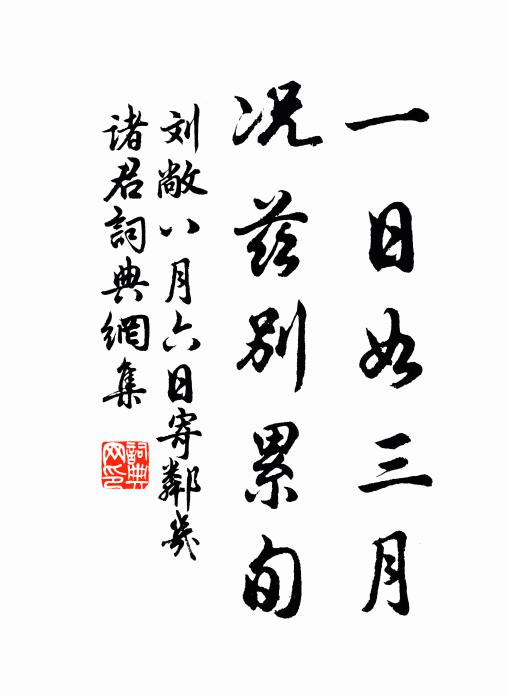 一日如三月
况兹别累旬
刘敞八月六日寄鄰幾
诸君詞典網集
詞典网印